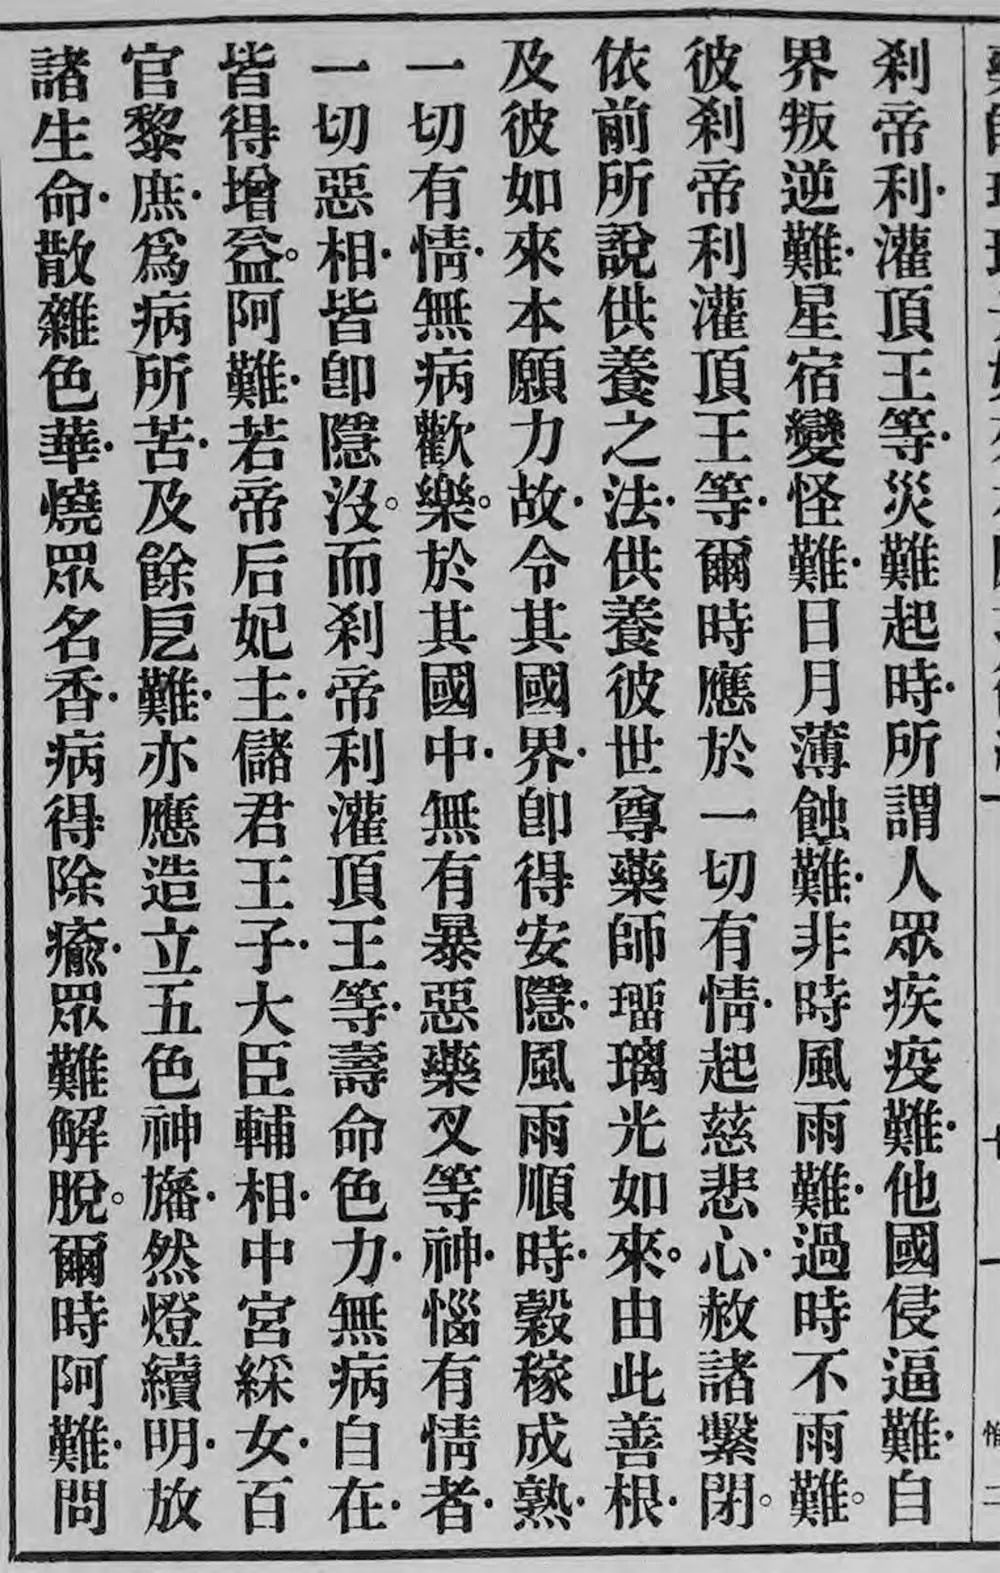 剎帝利·灌頂王等·災難起時·所謂人眾疾疫難·他國侵逼難·自
界叛逆難·星宿變怪難·日月薄蝕難·非時風雨難·過時不雨難。
彼剎帝利灌頂王等·爾時應於一切有情·起慈悲心·赦諸繫閉。
依前所說供養之法·供養彼世尊藥師瑠璃光如來。由此善根·
及彼如來本願力故·令其國界·即得安隱·風雨順時·穀稼成熟·
一切有情·無病歡樂。於其國中·無有暴惡藥叉等神·惱有情者·
一切惡相·皆即隱沒。而剎帝利灌頂王等·壽命色力·無病自在·
皆得增益。阿難·若帝后妃主·儲君王子·大臣輔相·中宮綵女·百
官黎庶·為病所苦·及餘戹難·亦應造立五色神旛·然燈續明·放
諸生命·散雜色華·燒眾名香·病得除瘉·眾難解脫。爾時阿難·問